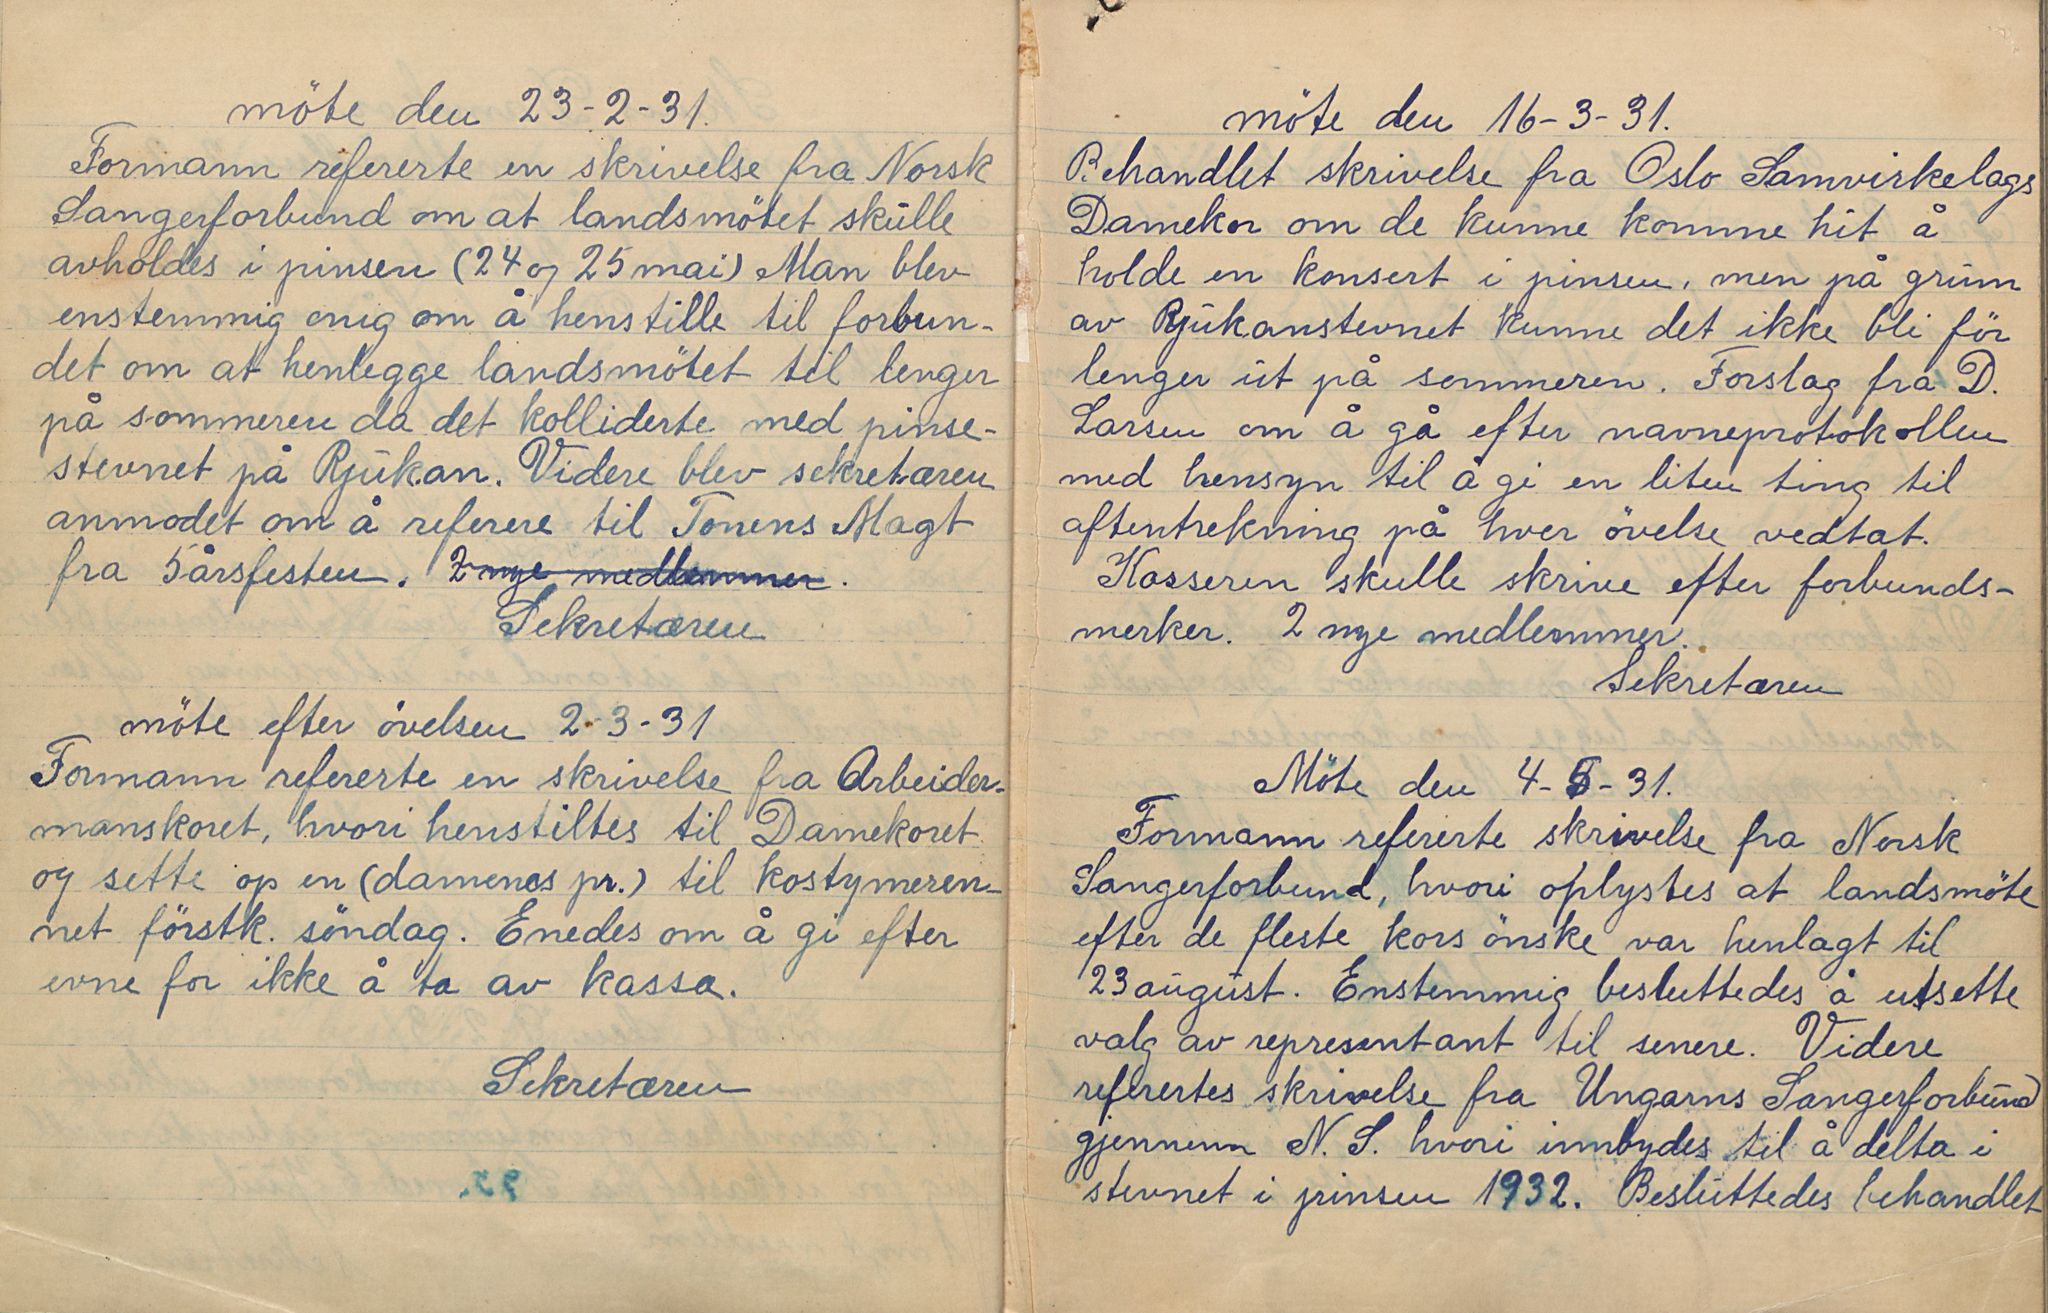 möte den 23-2-31.
Formann refererte en skrivelse fra Norsk
Sangerforbund om at landsmötet skulle
avholdes i pinsen (24 og 25 mai) Man blev
enstemmig enig om å henstille til forbun-
det om at henlegge landsmötet til lenger
på sommeren da det kolliderte med pinse-
stevnet på Rjukan. Videre blev sekretæren
anmodet om å referere til Tonens Magt
fra 5årsfesten. 2 nye medlemmer.
Sekretæren
möte efter övelsen 2-3-31
Formann refererte en skrivelse fra Arbeider-
manskoret, hvori henstiltes til Damekoret
og sette op en (damenes pr.) til kostymeren-
net förstk. söndag. Enedes om å gi efter
evne for ikke å ta av kassa.
Sekretæren
möte den 16-3-31.
Behandlet skrivelse fra Oslo Samvirkelags
Damekor om de kunne komme hit å
holde en konsert i pinsen, men på grunn
av Rjukanstevnet kunne det ikke bli för
lenger ut på sommeren. Forslag fra D.
Larsen om å gå efter navneprotokollen
med hensyn til å gi en liten ting til
aftentrekning på hver övelse vedtat.
Kasseren skulle skrive efter forbunds-
merker. 2 nye medlemmer.
Sekretæren
Möte den 4-5-31.
Formann refererte skrivelse fra Norsk
Sangerforbund, hvori oplystes at landsmöte
efter de fleste kors önske var henlagt til
23 august. Enstemmig besluttedes å utsette
valg av representant til senere. Videre
refertes skrivelse fra Ungarns Sangerforbund
gjennem N. S. hvori innbydes til å delta i
stevnet i pinsen 1932. Besluttedes behandlet